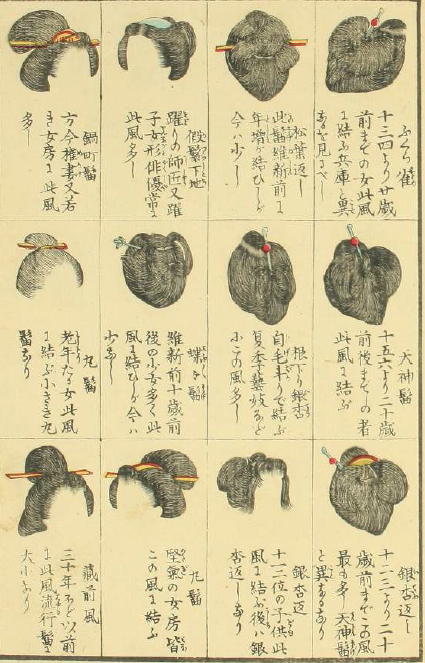 ふくら雀
十三四より廿歳
前までの女此風
に結ぶ兵庫と異
松葉返し
此髷維新前に
年増が結ひしが
今ハ少し
仮髷下地
踊りの師匠又踊
子女形俳優常に
此風多し
鍋町髷
方今権妻又若
き女房に此風
多し
天神髷
十五六より二十歳
前後までの者
此風に結ぶ
根下り銀杏
自毛半にて結ぶ
夏季藝妓など
にこの風多し
蝶々髷
維新前十歳前
後の少女多く此
風に結ひしが今ハ
少なし
丸髷
老年たる女此風
に結ぶ小さき丸
髷なり
銀杏返し
十一二より二十
歳前までこの風
最も多し天神髷
と異なるなり
銀杏返し
十二三位の子供此
風に結ぶ後ハ銀
杏返しなり
丸髷
堅気の女房皆
この風に結ぶ
蔵前風
三十年ほど以前
に此風流行し髷に
大小あり